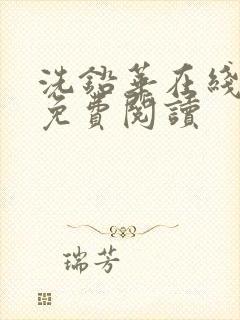 洗鉛華在綫
免費閱讀
瑞芳